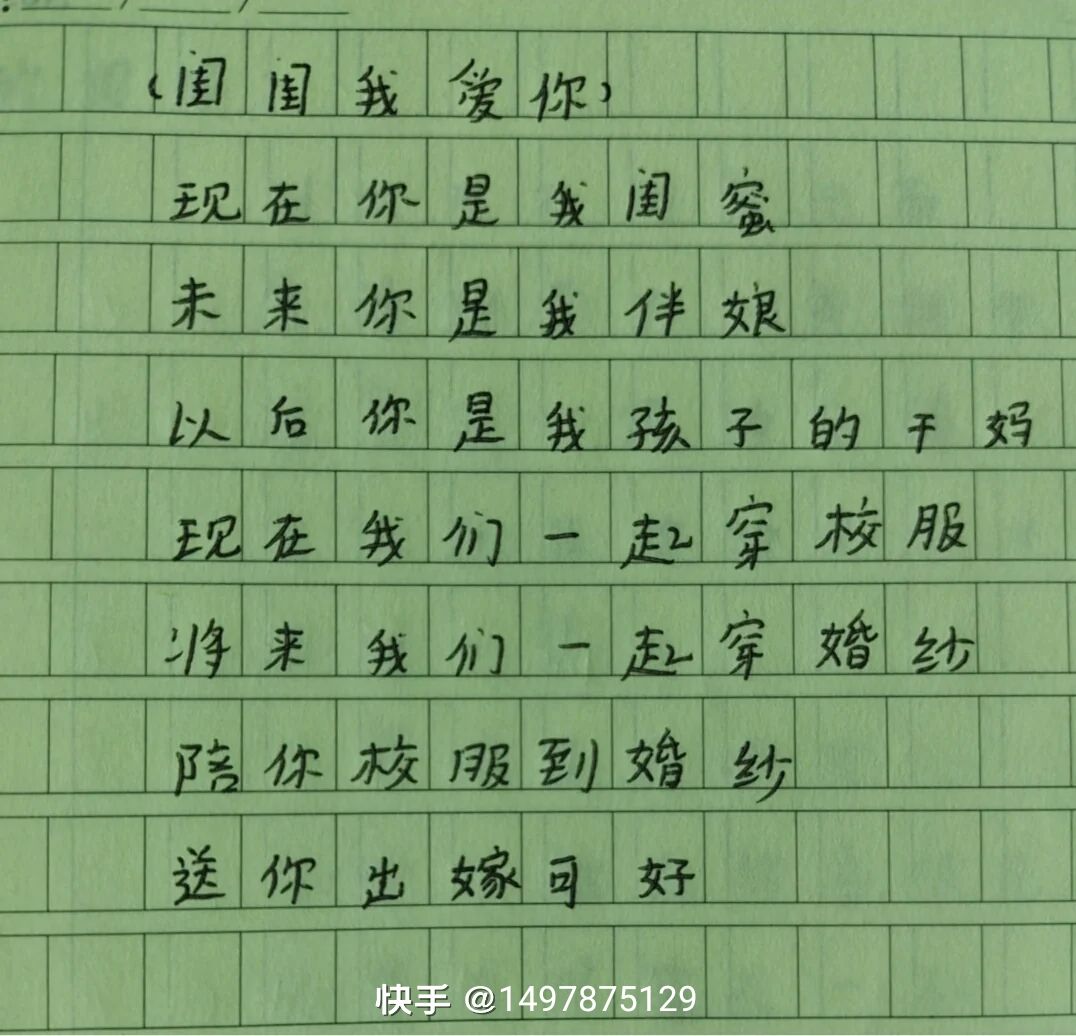 (闺闺我爱你)
现在你是我闺蜜
未来你是我伴娘
以后你是我孩子的干妈
现在我们一起穿校服
将来我们一起穿婚纱
陪你校服到婚纱
送你出嫁可好
快手 @1497875129